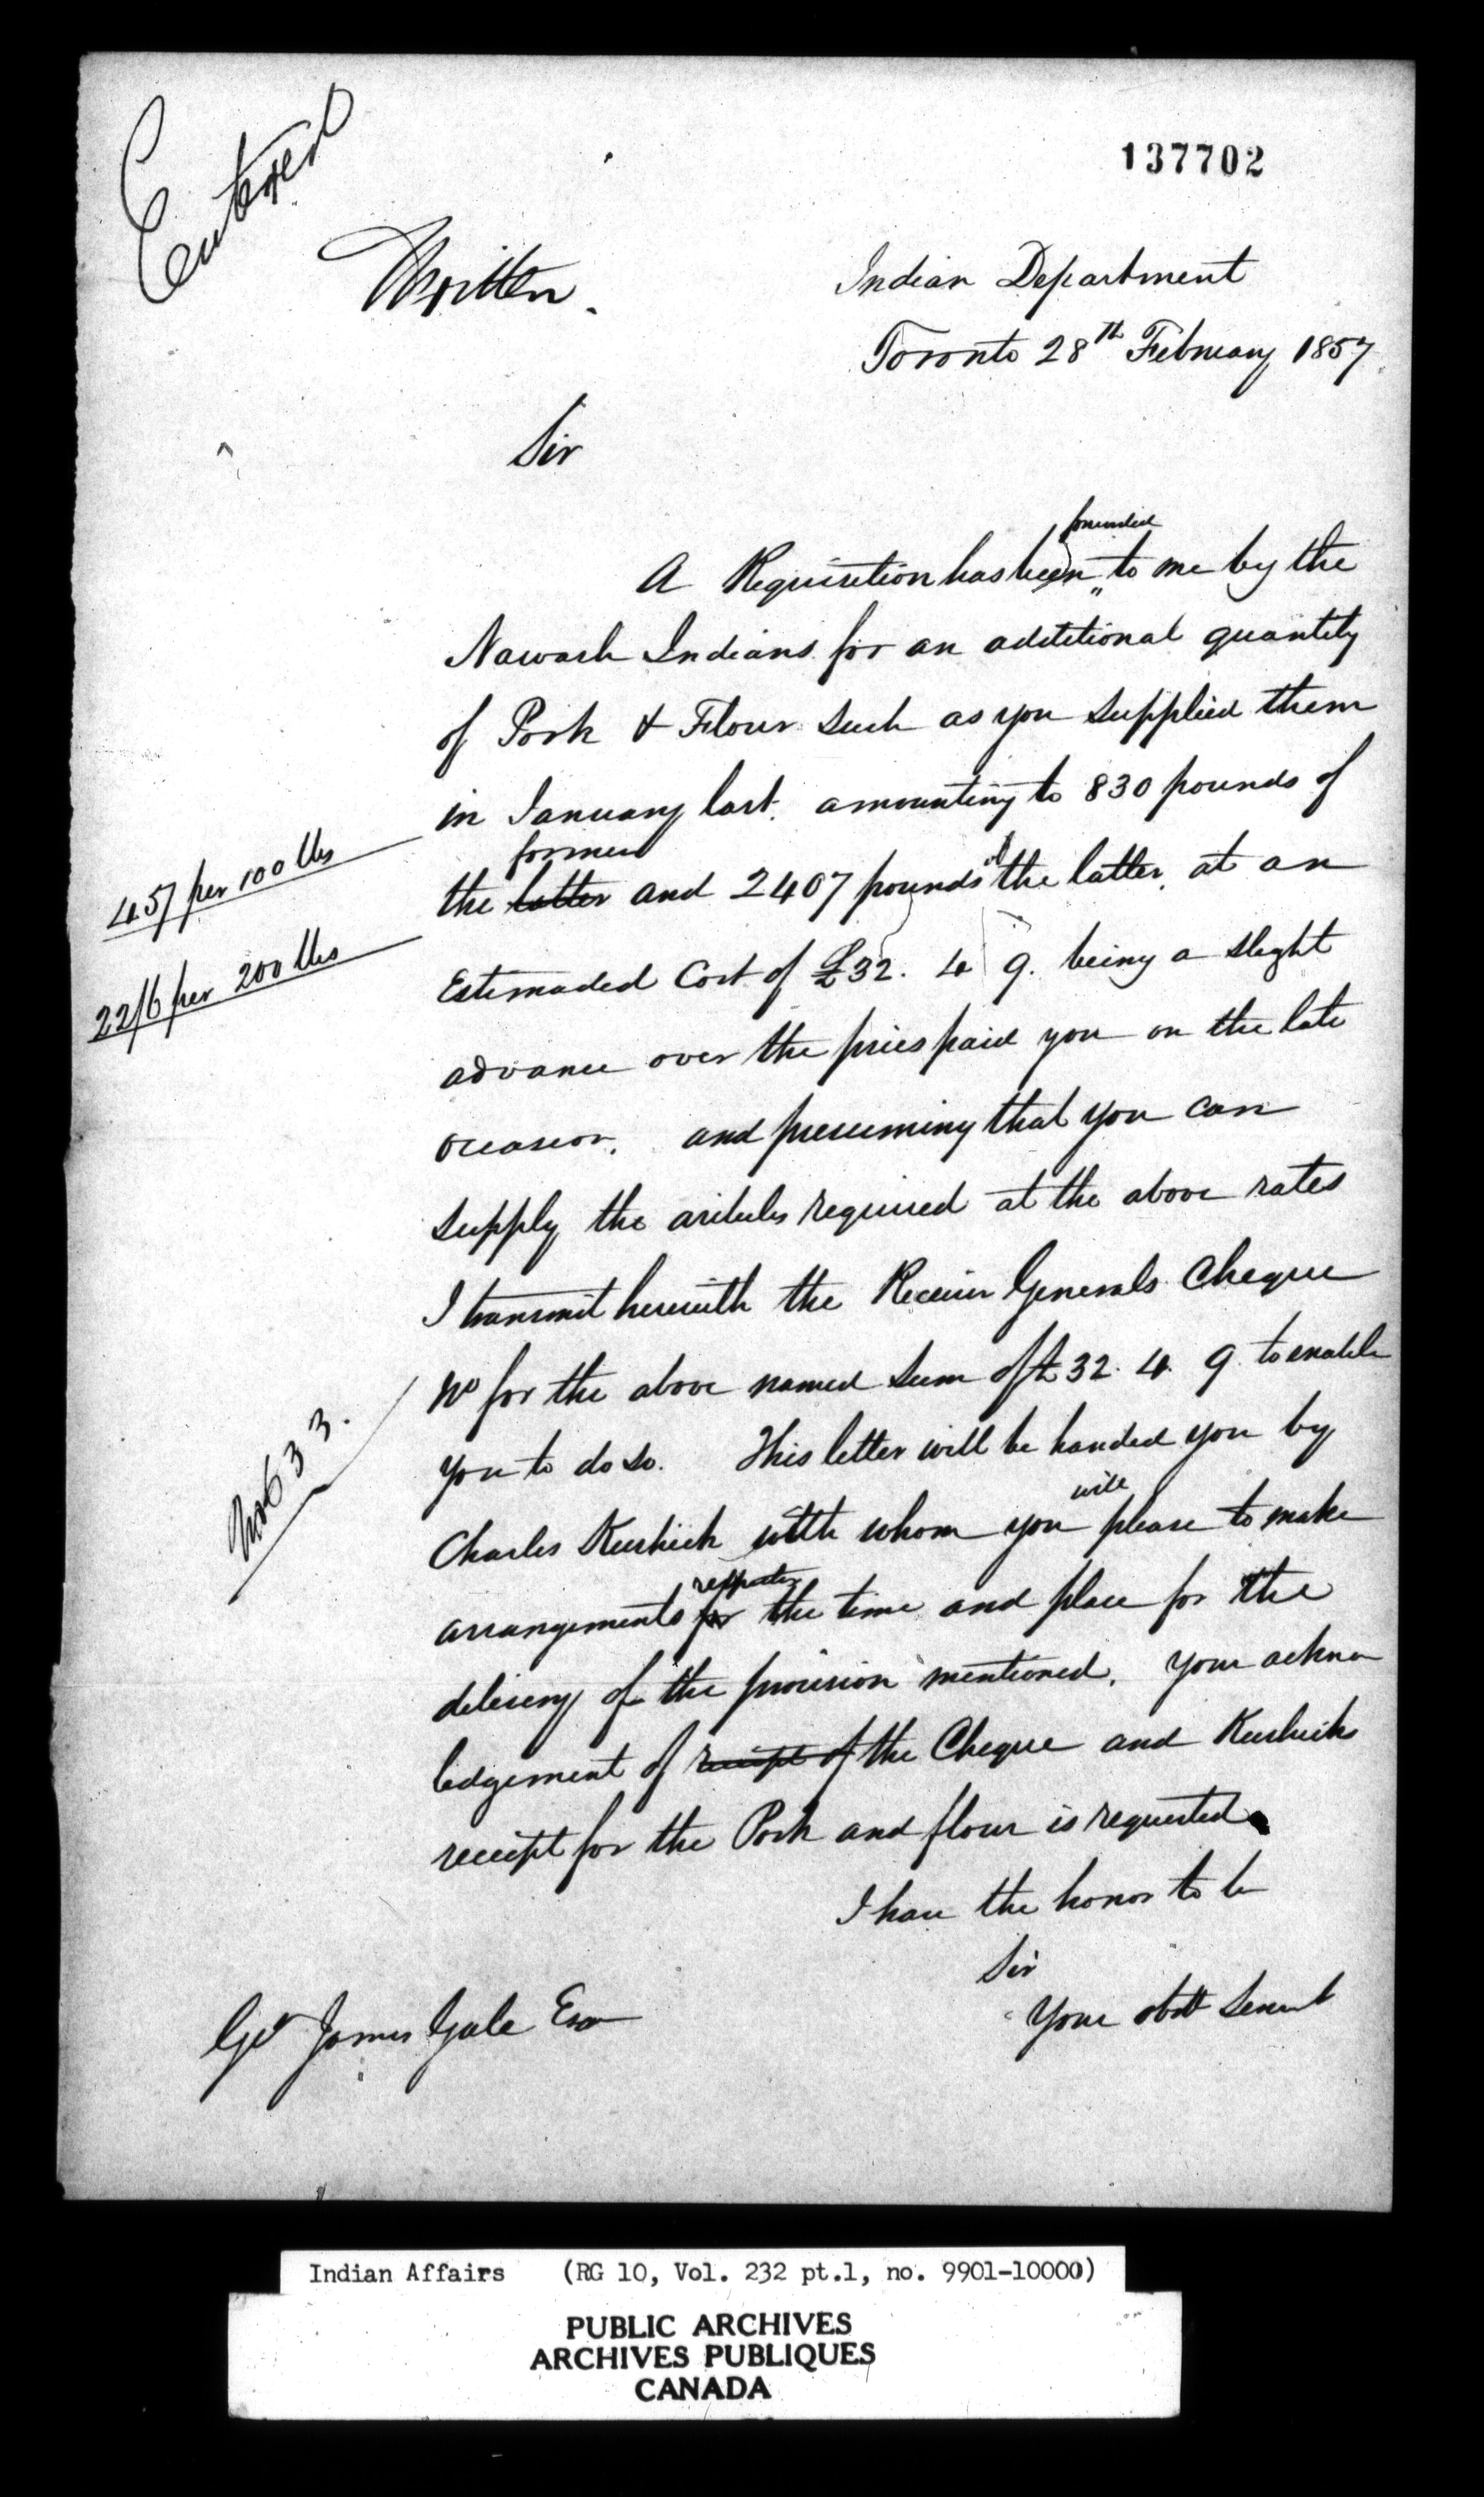 Entered
137702
Written.
Indian Department
Toronto 28th February 1857
Sir
A Requisition has been to me by the
Nawash Indians for an additional quantity
of Pork & Flour such as you supplied them
in January last. amounting to 830 pounds of
former
the latter and 2407 pounds of the latter, at an
45/ per 100 lbs
Estimaded Cost of £32. 4 9. being a slight
22/6 per 200 lbs
advance over the pries paid you on the late
occasion, and presuming that you can
supply the articles required at the above rates
I transmit herewith the Receiver Generals Cheque
No for the above named sum of £32. 4. 9 to enable
No 633.
you to do so. This letter will be handed you by
will
Charles Keeshick with whom you please to make
respecting
arrangements for the time and place for the
delivery of the provision mentioned. Your acknow
ledgement of receipt of the Cheque and Keeshicks
receipt for the Pork and flour is requested
I have the honor to be
Sir
Your obdt Servant
James Gale Esq
Indian Affairs (RG 10, Vol. 232 pt.1, no. 9901-10000)
PUBLIC ARCHIVES
ARCHIVES PUBLIQUES
CANADA